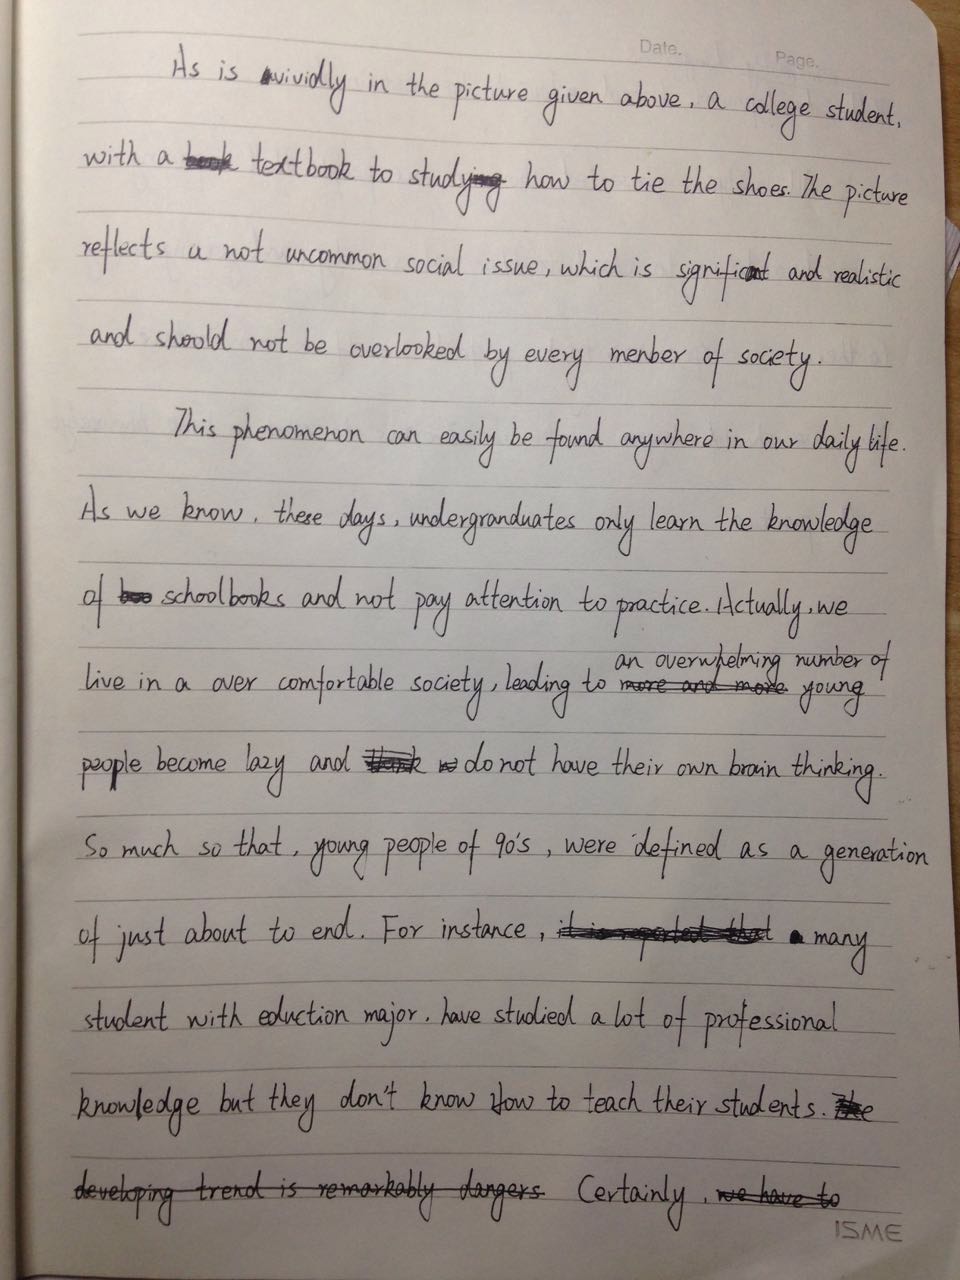 Date. Page.
As is vividly in the picture given above, a college student,
with a textbook to study how to tie the shoes. The picture
reflects a not uncommon social issue, which is significant and realistic
and shoold not be overlooked by every menber of society.
This phenomenon can easily be found anywhere in our daily life.
As we know, these days, undergranduates only learn the knowledge
of schoolbooks and not pay attention to practice. Actually, we
an overwhelming number of
live in a over comfortable society, leading to more and more young
people become lazy and do not have their own brain thinking.
So much so that, young people of 90's, were defined as a generation
of just about to end. For instance, it is reported that many
student with eduction major, have studied a lot of professional
knowledge but they don't know how to teach their students. The
developing trend is remarkably dangers Certainly, we have to
ISME